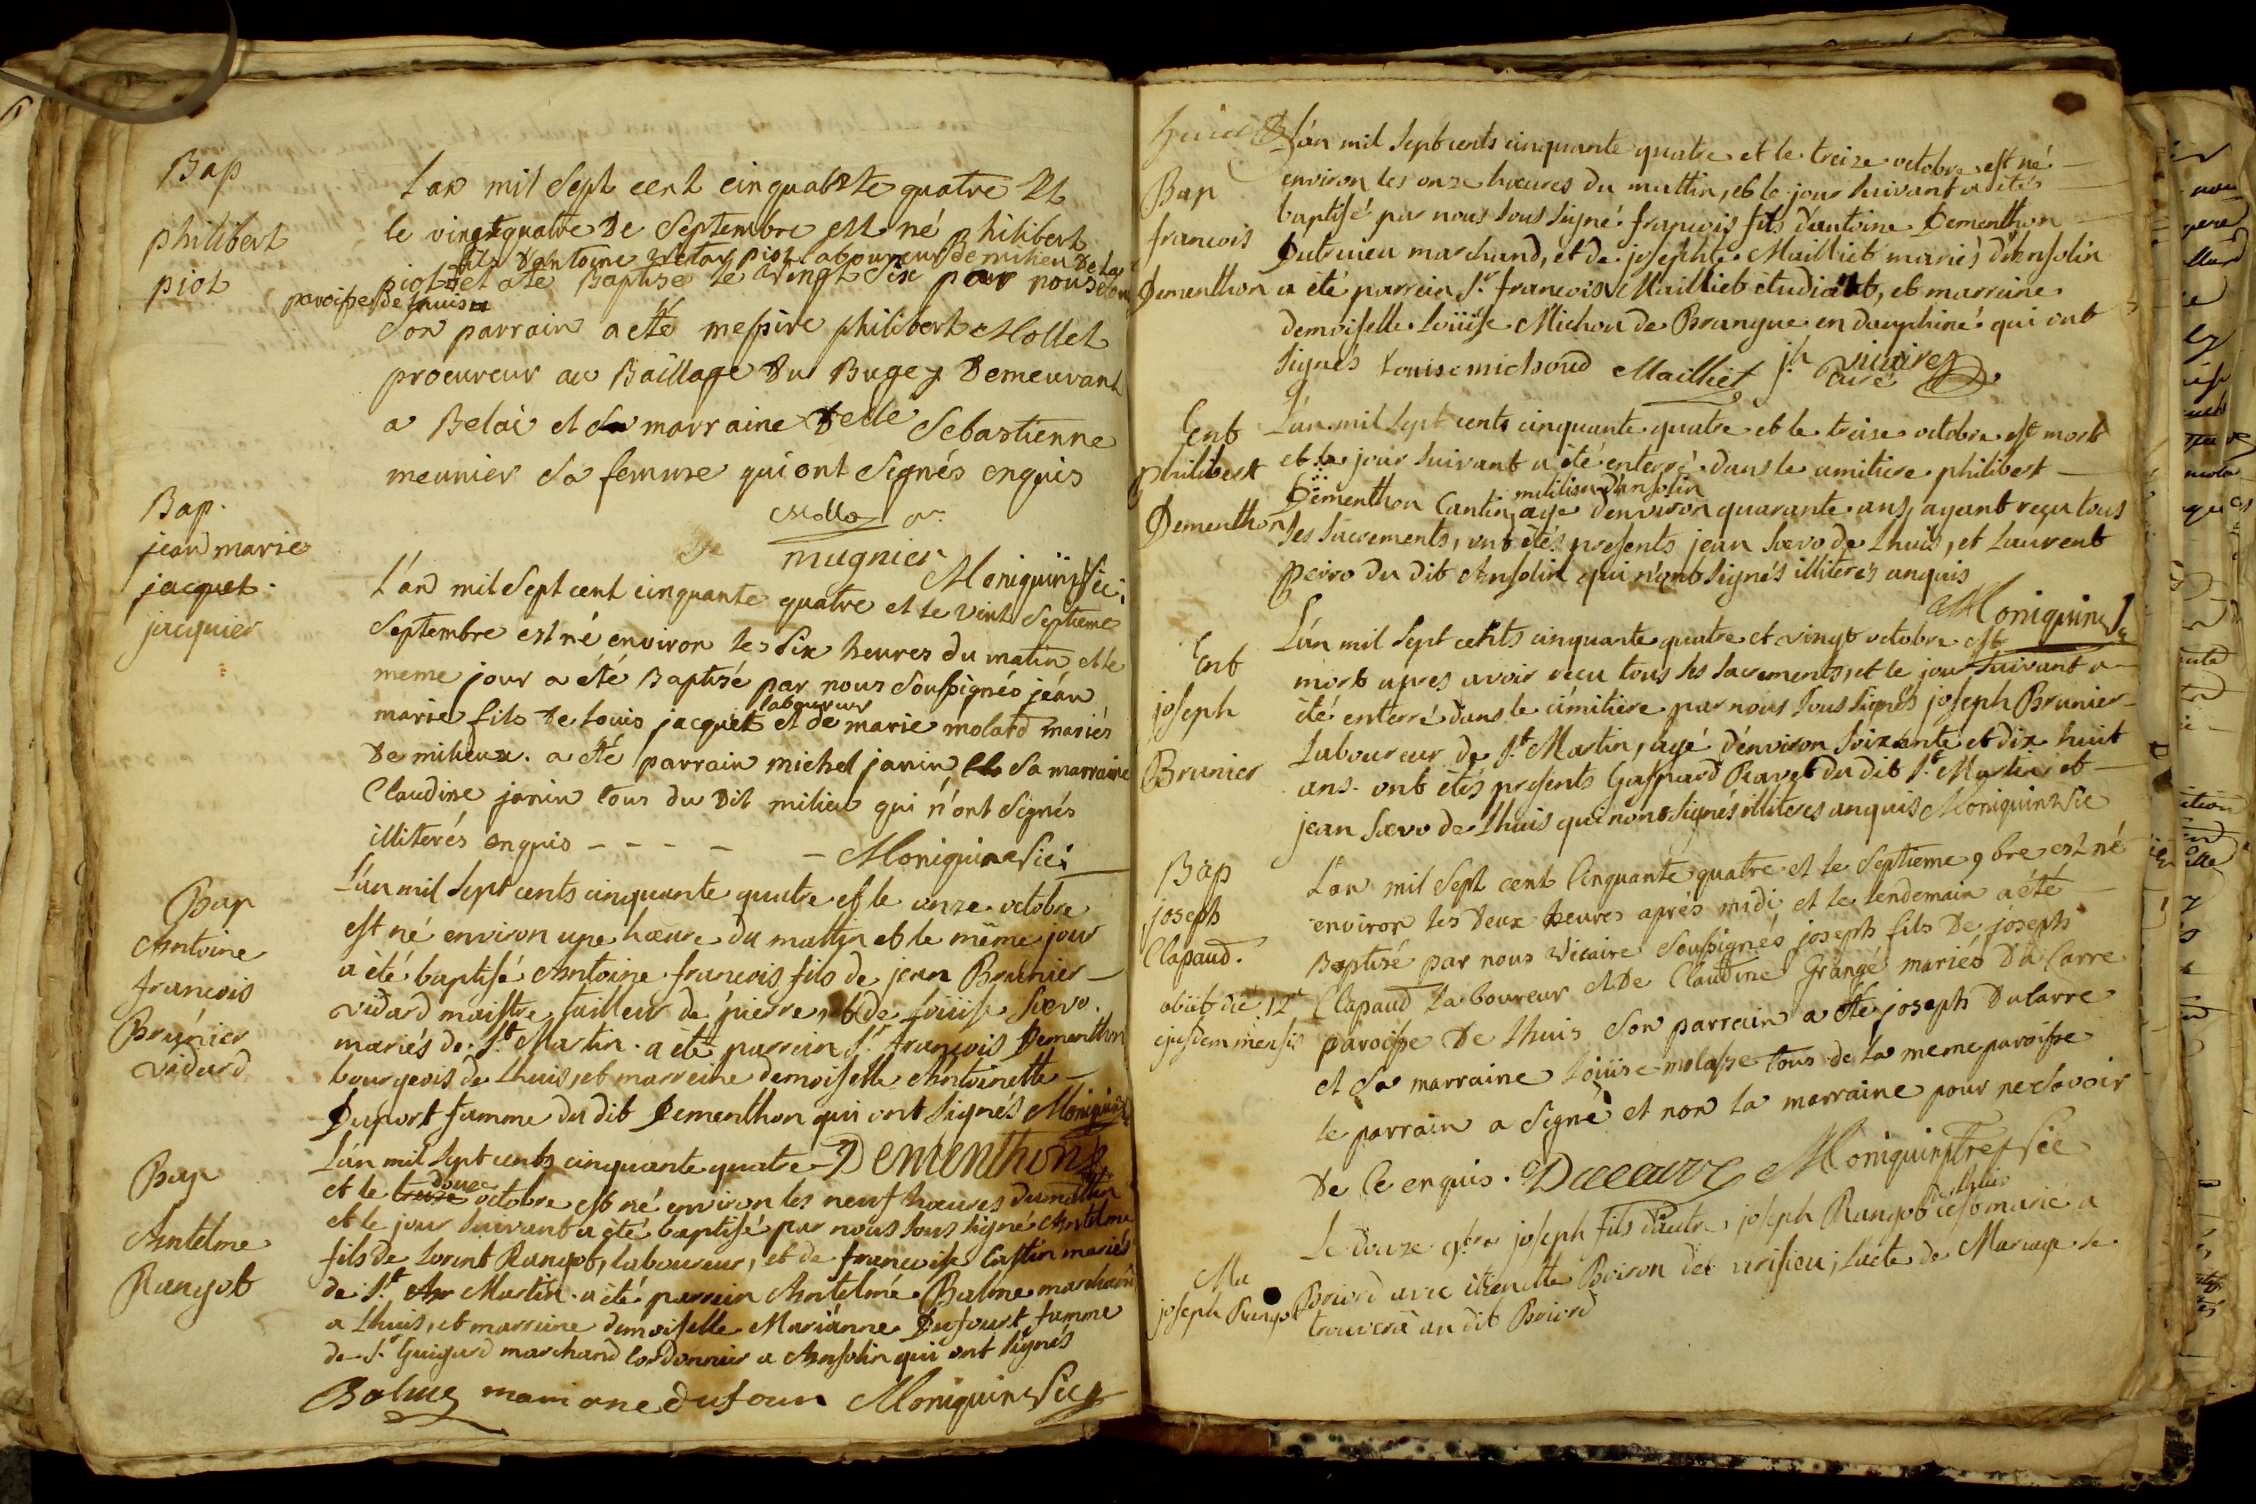 Bap
philibert
piot
L'an mil Sept cent cinquante quatre Et
le vingtquatre De Septembre est né Philibert
fils d'antoine piot laboureur De milieu De la
piot et été Baptisé le vingt Six par nous
paroisse de Lhuis
Son parrain a été messire philibert Mollet
procureur au Baillage Du Bugey Demeurant
a Belai et Sa marraine Delle Sebastienne
meunier Sa femme qui ont Signés enquis
Mollet
mugnier
Moniquin Vic:
Bap.
jean marie
jacquet.
jacquier
L'an mil Sept cent cinquante quatre et le vint Septieme
Septembre est né environ les Six heures du matin et le
meme jour a été Baptisé par nous Soussignés jean
laboureur
marie fils De Louis jacquet et de marie molard mariés
De milieux. a été parrain michel janin et Sa marraine
Claudine janin tous du Dit milieu qui n'ont Signés
illiterés enquis - - - - - Moniquin Vic:
Bap
Antoine
francois
Brunier
vidard
L'an mil Sept cents cinquante quatre et le onze octobre
est né environ une hœure du mattin et le même jour
a été baptisé Antoine francois fils de jean Brunier
vidard maistre tailleur de pierre, et de Loüise Sævo.
mariés de St Martin. a été parrein Sr françois Dementhon
bourgeois de Lhuis, et marreine demoiselle Antoinette
Duport famme du dit Dementhon qui ont Signés Moniquin
Dementhon
Bap
Antelme
Rangot
L'an mil Sept cents cinquante quatre
douze
et le treize octobre est né environ les neuf hœures du mattin
et le jour suivant a été baptisé par nous Sous signé Antelme
fils de Lorent Rangot, laboureur, et de francoise Castin mariés
de St An Martin. a été parrein Antelme Balme marchand
a Lhuis, et marreine demoiselle Marianne Dufourt famme
de Sr Guigard marchand Cordonnier a Ansolin qui ont Signés
Balme mariane dufour Moniquin Vic
Bap
francois
Dementhon
L'an mil Sept cents cinquante quatre et le treize octobre est né
environ les onze hœures du mattin, et le jour suivant a étés
baptisé par nous Sous signé francois fils d'antoine Dementhon
Dutruieu marchand, et de josephte Mailliet mariés d'Ensolin
a été parrein Sr francois Mailliet étudiant, et marreine
demoiselle Loüise Michou de Brangue en dauphiné qui ont
Signés Louise michoud Mailliet jh curé
Ent
philibert
Dementhon
L'an mil Sept cents cinquante quatre et le treise octobre est mort
et le jour suivant a été enterré dans le cimitiere philibert
militien d'ansolin
Dementhon Cantin, agé d'environ quarante ans, ayant reçu tous
les Sacrements, ont étés presents jean Sævo de Lhuis, et Laurent
Peiro du dit Ansolin qui n'ont Signés illiterés anquis
Moniquin
Ent
joseph
Brunier
L'an mil Sept cents cinquante quatre et vingt octobre est
mort apres avoir reçu tous les Sacrements, et le jour suivant a
été enterré dans le cimitière par nous Sous signés joseph Brunier
laboureur de St Martin, agé d'environ Soixante et dix huit
ans. ont étés presents Gaspard Ravet du dit St Martin et
jean Sævo de Lhuis qui n'ont Signés illiteres anquis Moniquin Vic
Bap
joseph
Clapaud.
obiit die 12
ejusdem mensis
L'an mil Sept cent Cinquante quatre et le Septieme 9bre est né
environ les Deux heures aprés midi et le lendemain a été
Baptisé par nous Vicaire Soussignés joseph fils De joseph
Clapaud Laboureur et De Claudine Grangé mariés Du Carre
paroisse De Lhuis Son parrain a été joseph Ducarre
et Sa marraine Loüise molasse tous de la meme paroisse
le parrain a Signé et non la marraine pour ne Savoir
De Ce enquis. Ducarre Moniquin Ptre Vic
Ma
joseph Rangot
de Lhuis
Le douze 9bre joseph fils d'autre joseph Rangot marié a
Briord avec étienette Boiron dit ; L'acte de Mariage se
trouvera au dit Briord